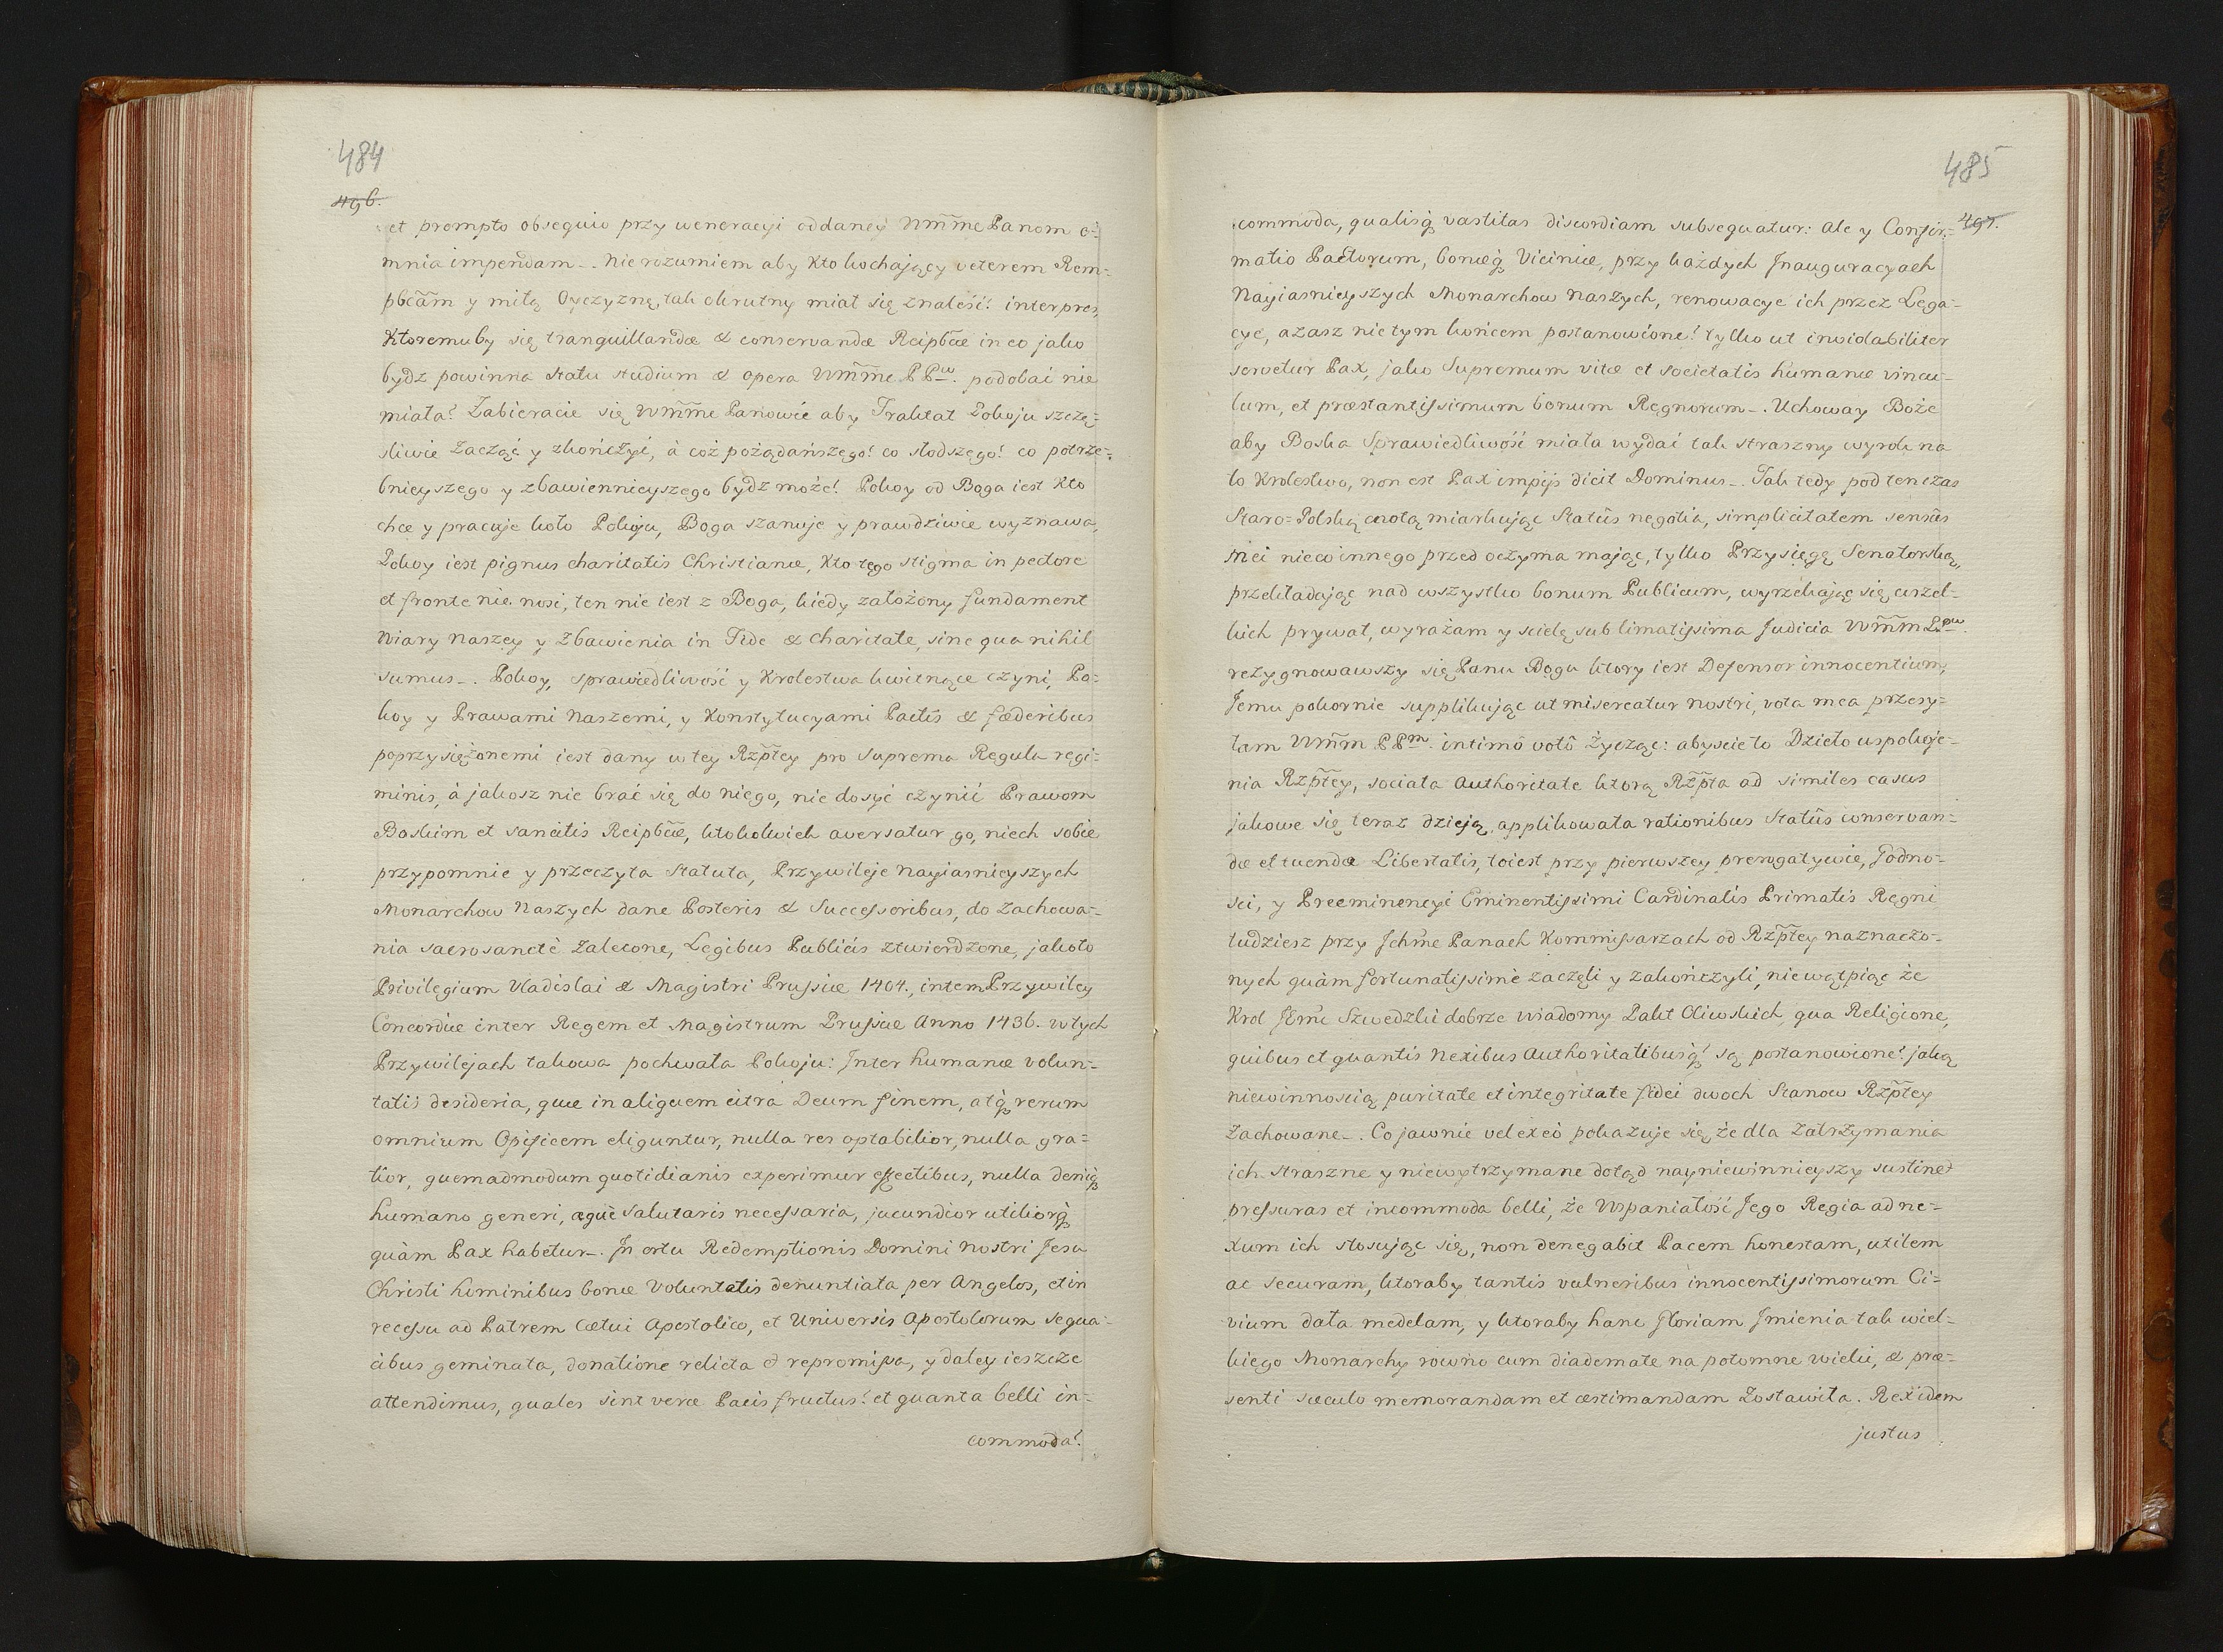 484
496.
et prompto obsequio przy weneracyi oddaney Wm̃m̃e Panom o=
mnia impendam_. Nie rozumiem aby Kto kochający veterem Rem=
pbc̃am y miłą Oyczyznę, tak okrutny miał się znaleść! interpres,
Ktoremuby się tranquillandæ & conservandæ Reipb̃cæ in eo jako
bydz powinna statu studium & opera Wm̃m̃e PPw. podobać nie
miała? Zabieracie się Wm̃m̃e Panowie aby Traktat Pokoju szczę=
śliwie zacząć y zkończyć, à coż pożądańszego! co słodszego! co potrze=
bnieyszego y zbawiennieyszego bydz może! Pokoy od Boga iest Kto
chce y pracuje koło Pokoju, Boga szanuje y prawdziwie wyznawa,
Pokoy iest pignus charitatis Christianæ, Kto tego stigma in pectore
et fronte nie nosi, ten nie iest z Boga, kiedy założony fundament
Wiary Naszey y Zbawienia in Fide & Charitate, sine qua nihil
sumus_. Pokoy, sprawiedliwość y Krolestwa kwitnące czyni, Po=
koy y Prawami Naszemi, y Konstytucyami Pactis & fœderibus
poprzysiężonemi iest dany w tey Rzp̃tey pro Suprema Regula regi=
minis, à jakosz nie brać się do niego, nie dosyć czynić Prawom
Boskim et sancitis Reipb̃cæ, ktokolwiek aversatur go, niech sobie
przypomnie y przeczyta Statuta, Przywileje Nayiasnieyszych
Monarchow Naszych dane Posteris & Successoribus, do zachowa=
nia sacrosanctè zalecone, Legibus Publicis ztwierdzone, jakoto
Privilegium Vladislai & Magistri Prussiæ 1404., intem Przywiley
Concordiæ inter Regem et Magistrum Prussiæ Anno 1436. w tych
Przywilejach takowa pochwała Pokoju: Inter humanæ volun=
tatis desideria, quæ in aliquem citra Deum finem, atq́ rerum
omnium Opificem eliguntur, nulla res optabilior, nulla gra=
tior, quemadmodum quotidianis experimur effectibus, nulla deniq́
humano generi, æquè salutaris necessaria, jucundior utiliorq́
quàm Pax habetur_. In ortu Redemptionis Domini Nostri Jesu
Christi hominibus bonæ voluntatis denuntiata per Angelos, et in
recessu ad Patrem Cœtui Apostolico, et Universis Apostolorum sequa=
cibus geminata, donatione relicta & repromissa, y daley ieszcze
attendimus, quales sint veræ Pacis fructus! et quanta belli in=
commoda!
485
497.
commoda, qualisq́ vastitas discordiam subsequatur: Ale y Confir=
matio Pactorum, bonæq́ Viciniæ, przy każdych Inauguracyach
Nayiasnieyszych Monarchow Naszych, renowacye ich przez Lega=
cye, azasz nie tym końcem postanowione! tylko ut inviolabiliter
servetur Pax, jako Supremum vitæ et societatis humanæ vincu=
lum, et præstantissimum bonum Regnorum_. Uchoway Boże
aby Boska Sprawiedliwość miała wydać tak straszny wyrok na
to Krolestwo, non est Pax impijs dicit Dominus_. Tak tedy pod ten czas
Staro=Polską cnotą miarkując Statûs negotia, simplicitatem sensûs
mei nieco innego przed oczyma mając, tylko Przysięgę Senatorską,
przekładając nad wszystko bonum Publicum, wyrzekając się wszel=
kich prywat, wyrażam y sciełę sub limatissima Judicia Wm̃m̃ PPw.
rezygnowawszy się Panu Bogu ktory iest Defensor innocentium,
Jemu pokornie supplikując ut misereatur nostri, vota mea przesy=
łam Wm̃m̃ PPm. intimô votô życząc: abyscie to Dzieło uspokoje=
nia Rzp̃tey, sociata Authoritate ktorą Rzp̃ta ad similes casus
jakowe się teraz dzieją, applikowała rationibus Statûs conservan=
dæ et tuendæ Libertatis, toiest przy pierwszey prerogatywie, Godno=
sci, y Preeminencyi Eminentissimi Cardinalis Primatis Regni
tudziesz przy Ichm̃e Panach Kommissarzach od Rzp̃tey naznaczo=
nych quàm fortunatissimè zaczęli y zakończyli, niewątpiąc że
Krol Jm̃c Szwedzki dobrze wiadomy Pakt Oliwskich, qua Religione,
quibus et quantis nexibus Authoritatibusq́! są postanowione! jaką
niewinnością puritate et integritate fidei dwoch Stanow Rzp̃tey
zachowane_. Co jawnie vel ex eô pokazuje się, że dla zatrzymania
ich straszne y niewytrzymane dotąd nayniewinnieyszy sustinet
pressuras et incommoda belli, że Wspaniałość Jego Regia ad ne=
xum ich stosując się, non denegabit Pacem honestam, utilem
ac securam, ktoraby tantis vulneribus innocentissimorum Ci=
vium dała medelam, y ktoraby hanc Gloriam Imienia tak wiel=
kiego Monarchy rowno cum diademate na potomne wieki, & præ=
senti sæculo memorandam et æstimandam zostawiła. Rex idem
justus